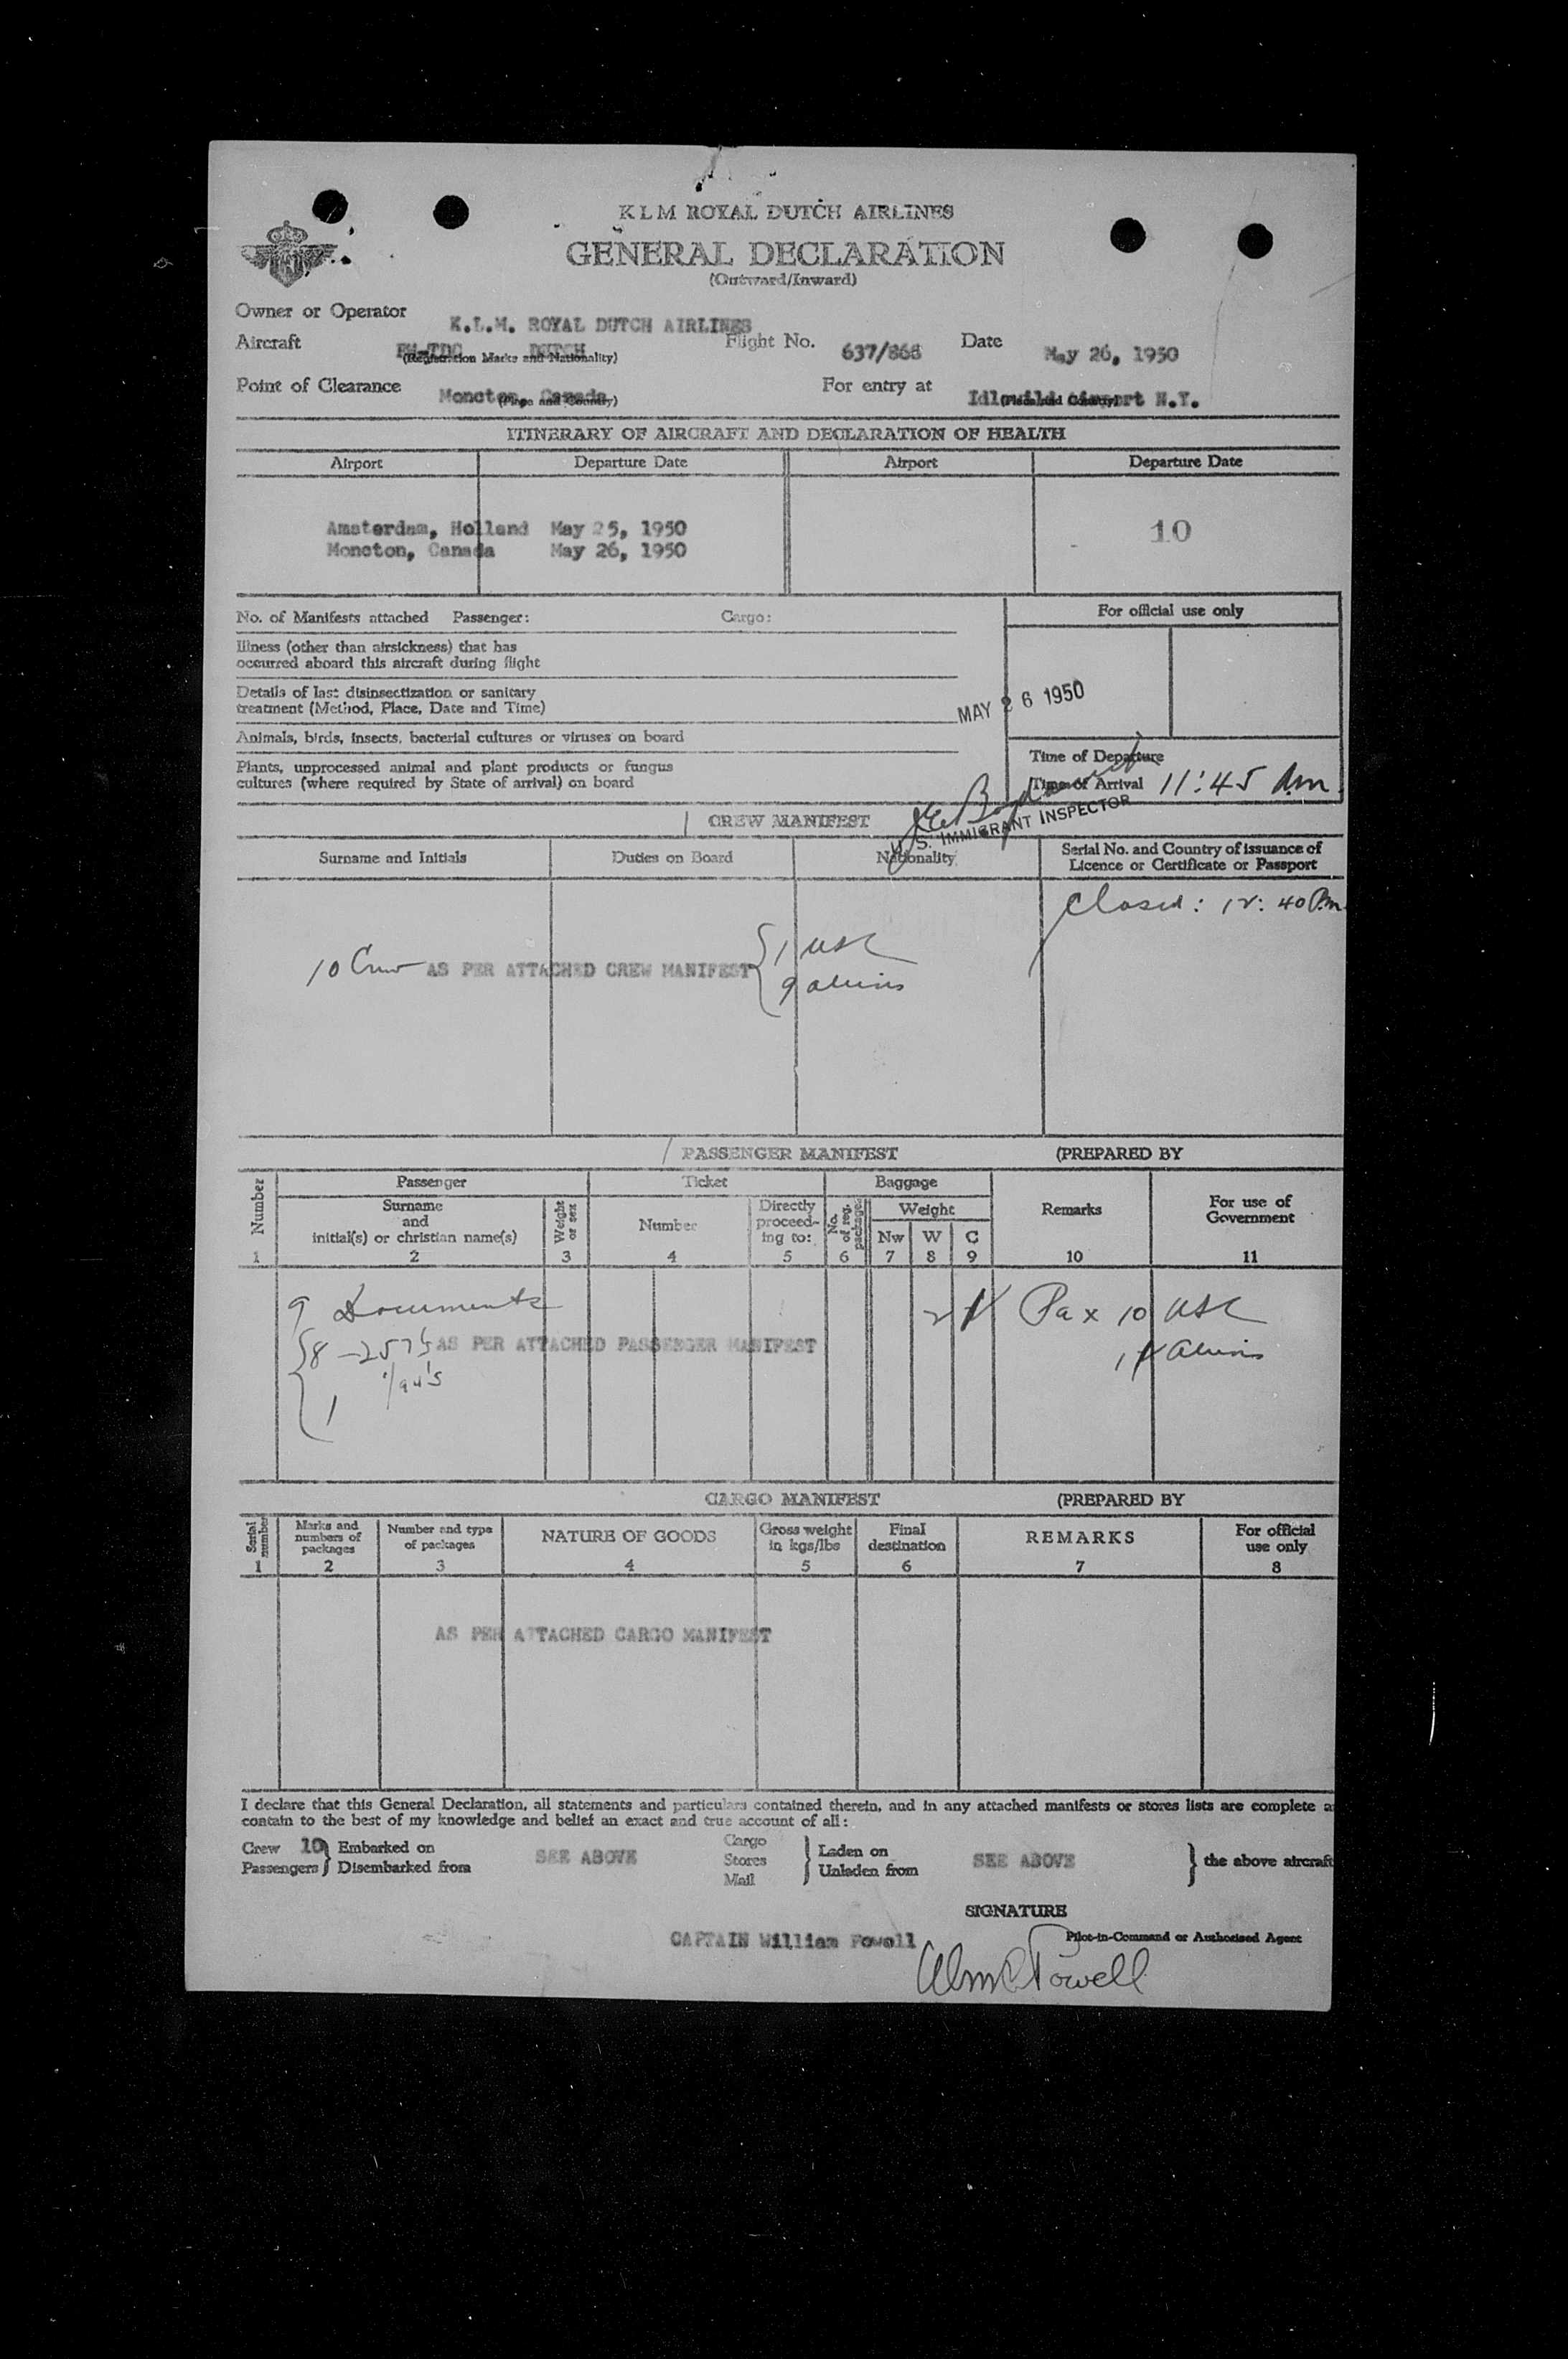 KLM ROYAL DUTCH AIRLINES
GENERAL DECLARATION
(Outward/Inward)
Owner or Operator K.L.M. ROYAL DUTCH AIRLINES
Aircraft PH-TDC DUTCH Flight No. 637/868 Date May 26, 1950
(Registration Marks and Nationality)
Point of Clearance Moncton, Canada For entry at Idlewild Airport N.Y.
(Place and Country) (Place and Country)
ITINERARY OF AIRCRAFT AND DECLARATION OF HEALTH
Airport Departure Date Airport Departure Date
Amsterdam, Holland May 25, 1950 10
Moncton, Canada May 26, 1950
No. of Manifests attached Passenger: Cargo: For official use only
Illness (other than airsickness) that has
occurred aboard this aircraft during flight
Details of last disinsectization or sanitary
treatment (Method, Place, Date and Time)
MAY 26 1950
Animals, birds, insects, bacterial cultures or viruses on board
Plants, unprocessed animal and plant products or fungus
cultures (where required by State of arrival) on board
Time of Departure
Time of Arrival 11:45 Am.
U.S. IMMIGRANT INSPECTOR
CREW MANIFEST
Surname and Initials Duties on Board Nationality Serial No. and Country of issuance of
Licence or Certificate or Passport
Closed: 12:40 Pm.
10 Crew AS PER ATTACHED CREW MANIFEST 1 USC
9 aliens
PASSENGER MANIFEST (PREPARED BY
Number Passenger Ticket Baggage Remarks For use of
Government
Surname
and
initial(s) or christian name(s) Weight
or sex Number Directly
proceed-
ing to: No.
of reg.
packages Weight
Nw W C
1 2 3 4 5 6 7 8 9 10 11
9 Documents Pax 10 USC
8 - 257's AS PER ATTACHED PASSENGER MANIFEST Aliens
1
CARGO MANIFEST (PREPARED BY
Serial
number Marks and
numbers of
packages Number and type
of packages NATURE OF GOODS Gross weight
in kgs/lbs Final
destination REMARKS For official
use only
1 2 3 4 5 6 7 8
AS PER ATTACHED CARGO MANIFEST
I declare that this General Declaration, all statements and particulars contained therein, and in any attached manifests or stores lists are complete a
contain to the best of my knowledge and belief an exact and true account of all:
Crew 10 Embarked on Cargo Laden on
Passengers Disembarked from SEE ABOVE Stores Unladen from SEE ABOVE the above aircraft
Mail
SIGNATURE
CAPTAIN William Powell Pilot-in-Command or Authorised Agent
Wm C Powell